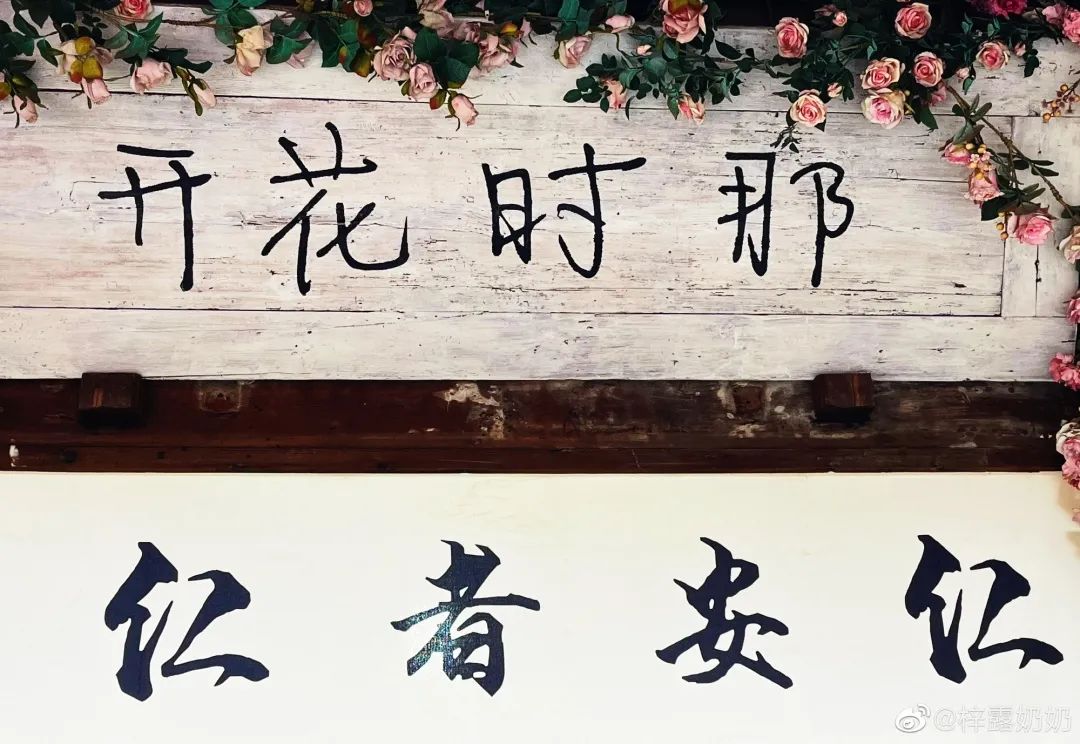 开花时那
仁者安仁
@梓露奶奶